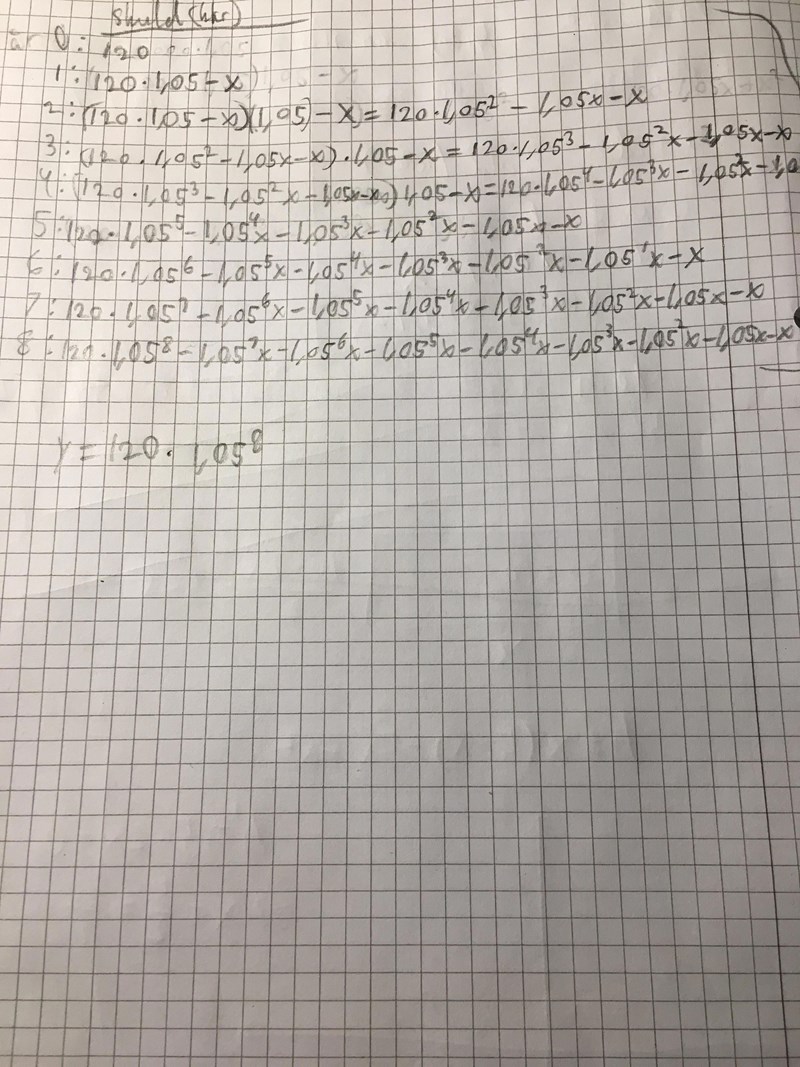 Skuld (kkr)
år 0: 120
1: (120·1,05-x)
2: (120·1,05-x)(1,05)-x = 120·1,05² - 1,05x-x
3: (120·1,05²-1,05x-x)·1,05-x = 120·1,05³-1,05²x-1,05x-x
4: (120·1,05³-1,05²x-1,05x-x)1,05-x=120·1,05⁴-1,05³x-1,05²x-1,0
5: 120·1,05⁵-1,05⁴x-1,05³x-1,05²x-1,05x-x
6: 120·1,05⁶-1,05⁵x-1,05⁴x-1,05³x-1,05²x-1,05¹x-x
7: 120·1,05⁷-1,05⁶x-1,05⁵x-1,05⁴x-1,05³x-1,05²x-1,05x-x
8: 120·1,05⁸-1,05⁷x-1,05⁶x-1,05⁵x-1,05⁴x-1,05³x-1,05²x-1,05x-x
y = 120·1,05⁸